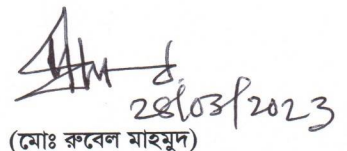 28/03/2023
(মোঃ রুবেল মাহমুদ)